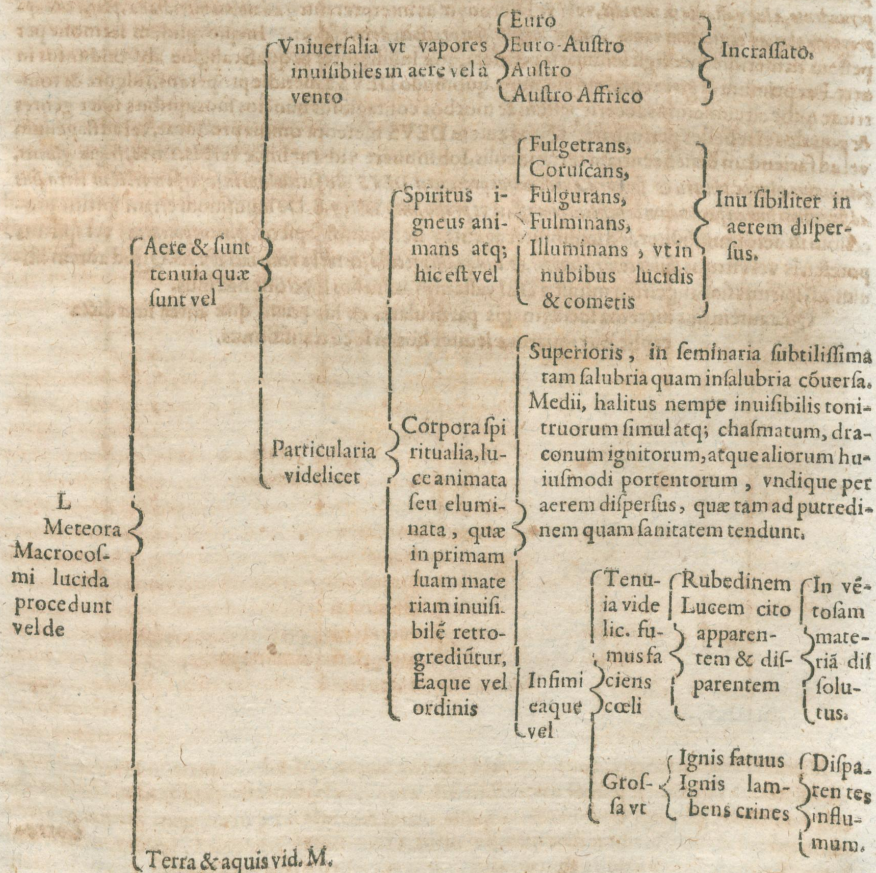 L
Meteora
Macrocoſ-
mi lucida
procedunt
vel de
Aere & ſunt
tenuia quæ
ſunt vel
Vniuerſalia vt vapores
inuiſibiles in aere vel à
vento
Euro
Euro-Auſtro
Auſtro
Auſtro Affrico
Incraſſato.
Particularia
videlicet
Spiritus i-
gneus ani-
mans atq;
hic eſt vel
Fulgetrans,
Coruſcans,
Fulgurans,
Fulminans,
Illuminans, vt in
nubibus lucidis
& cometis
Inuiſibiliter in
aerem diſper-
ſus.
Corpora ſpi
ritualia, lu-
ce animata
ſeu elumi-
nata, quæ
in primam
ſuam mate
riam inuiſi-
bilē retro-
grediūtur,
Eaque vel
ordinis
Superioris, in ſeminaria ſubtiliſſima
tam ſalubria quam inſalubria cōuerſa.
Medii, halitus nempe inuiſibilis toni-
truorum ſimul atq; chaſmatum, dra-
conum ignitorum, atque aliorum hu-
iuſmodi portentorum, vndique per
aerem diſperſus, quæ tam ad putredi-
nem quam ſanitatem tendunt.
Infimi
eaque
vel
Tenu-
ia vide
lic. fu-
mus fa
ciens
cœli
Rubedinem
Lucem cito
apparen-
tem & diſ-
parentem
In vē-
toſam
mate-
riā diſ
ſolu-
tus.
Groſ-
ſa vt
Ignis fatuus
Ignis lam-
bens crines
Diſpa-
rentes
in flu-
mum.
Terra & aquis vid. M.